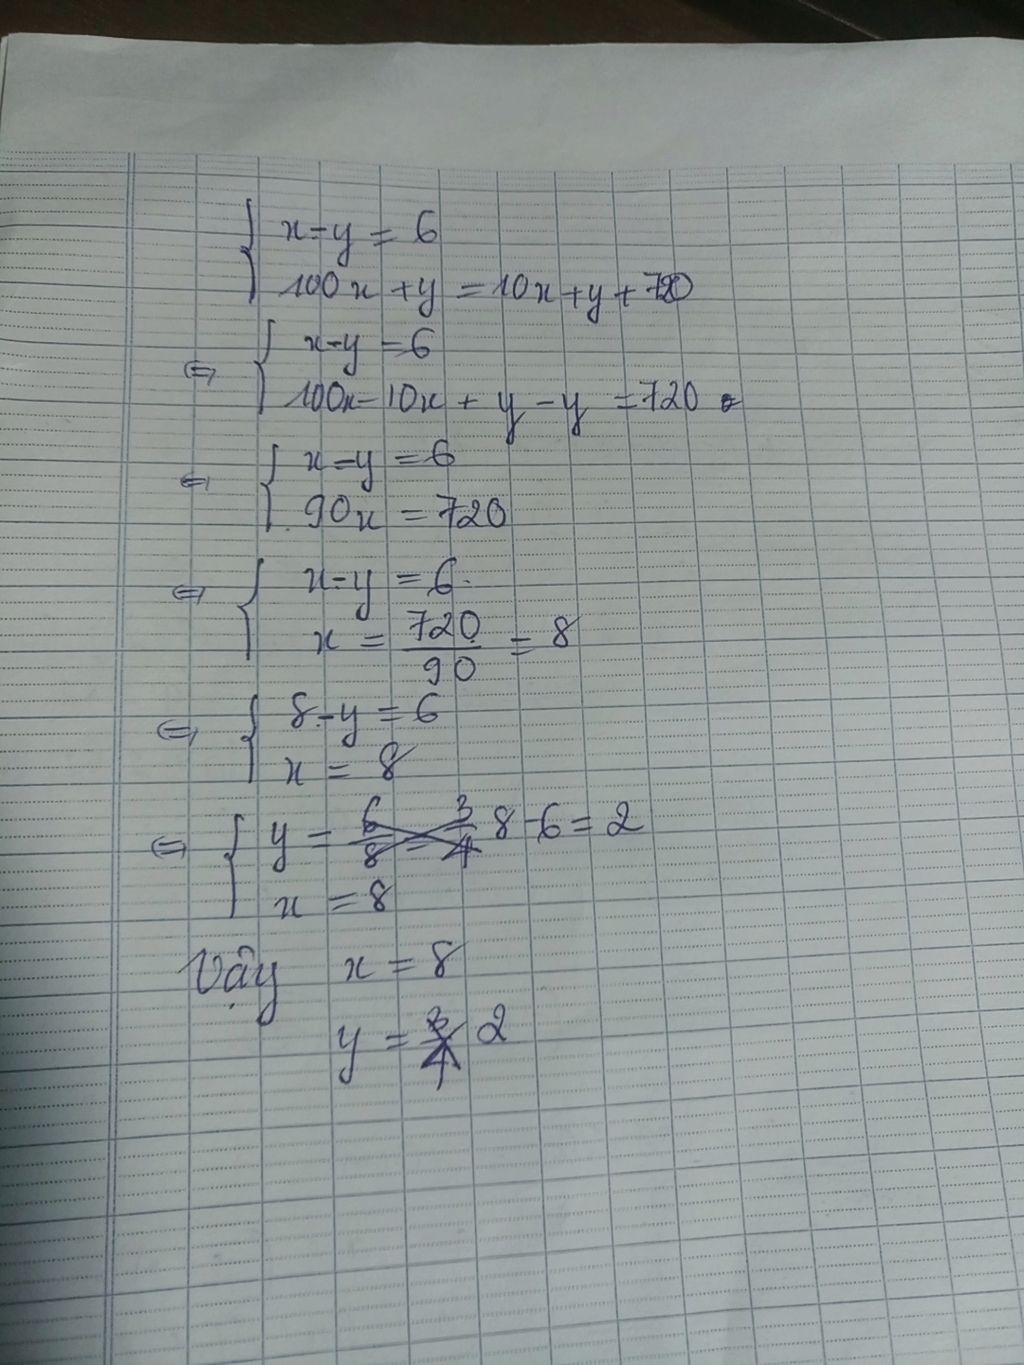 { x - y = 6
100x + y = 10x + y + 720
⇔ { x - y = 6
100x - 10x + y - y = 720
⇔ { x - y = 6
90x = 720
⇔ { x - y = 6
x = 720/90 = 8
⇔ { 8 - y = 6
x = 8
⇔ { y = 6/8 = 3/4 8 - 6 = 2
x = 8
Vậy x = 8
y = 3/4 2